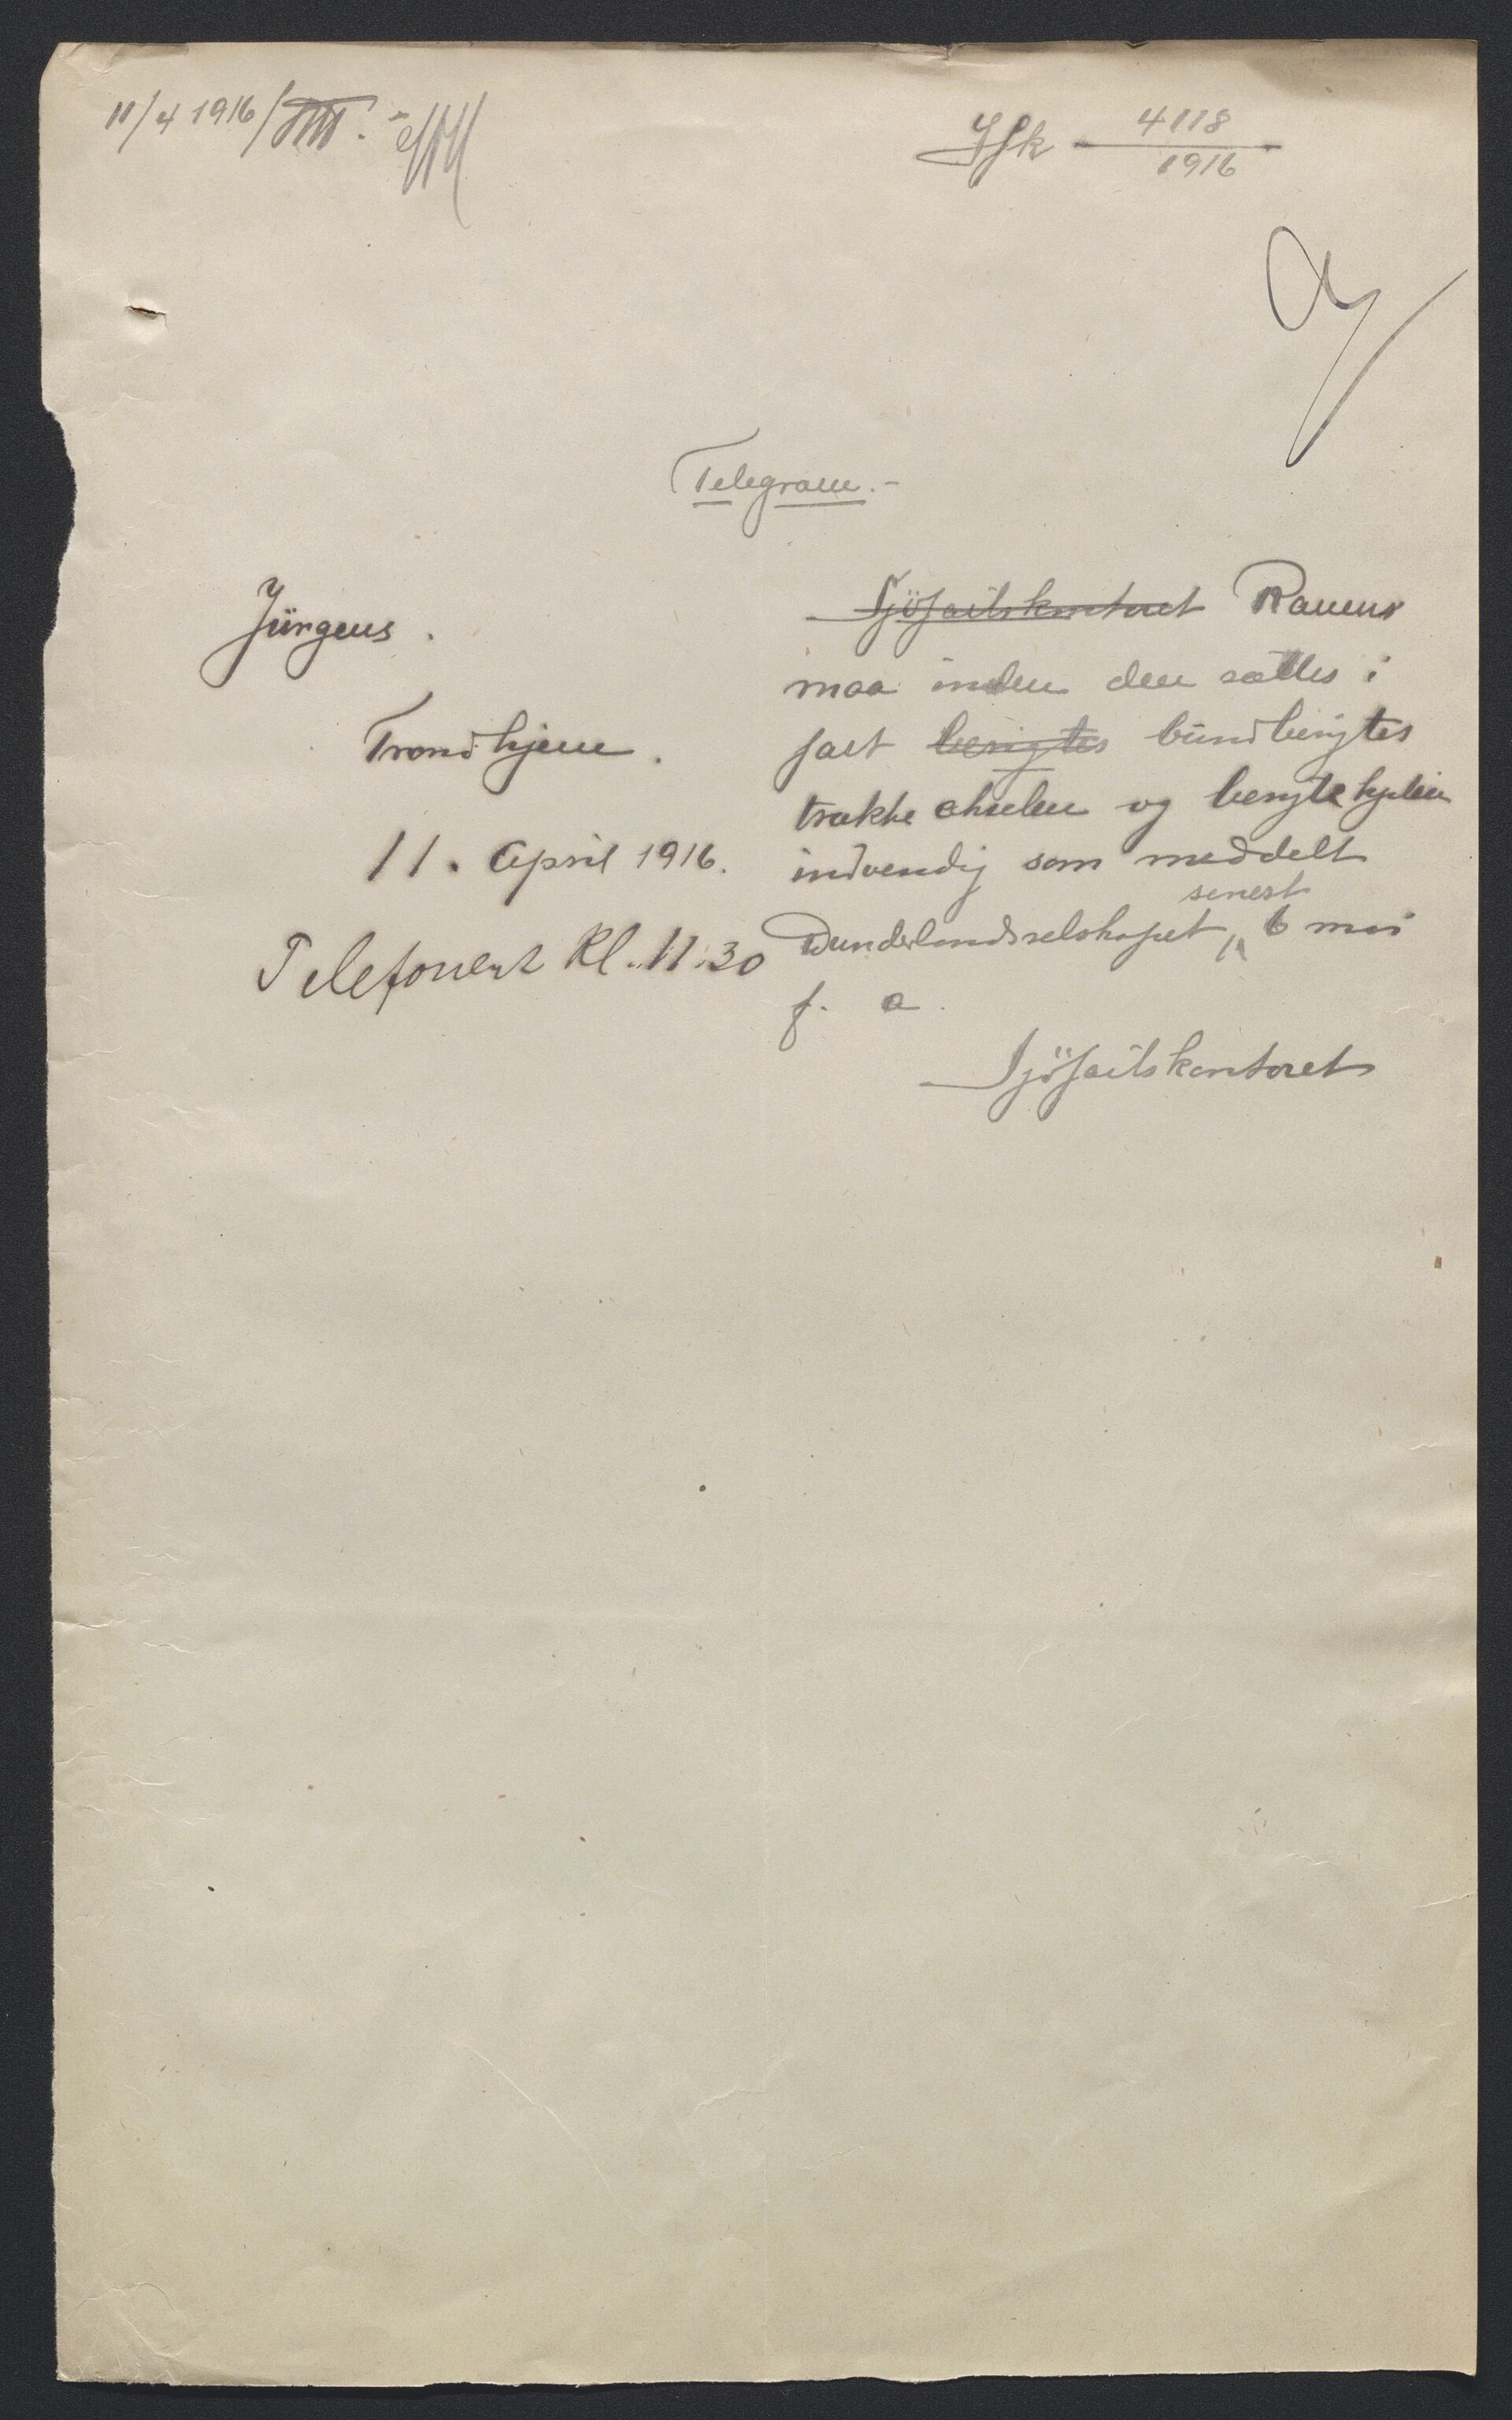 11/4 1916/
Sfk 4118
1916
Telegram.-
Jürgens.
Trondhjem.
11. April 1916.
Telefonert Kl. 11.30
Sjöfartskontoret Ranens
maa inden den sættes i
fart besigtes bundbesigtes
trække akselen og besigte kjelen
indvendig som meddelt
senest
Dunderlandsselskapet, 6 mai
f. a.
Sjöfartskontoret